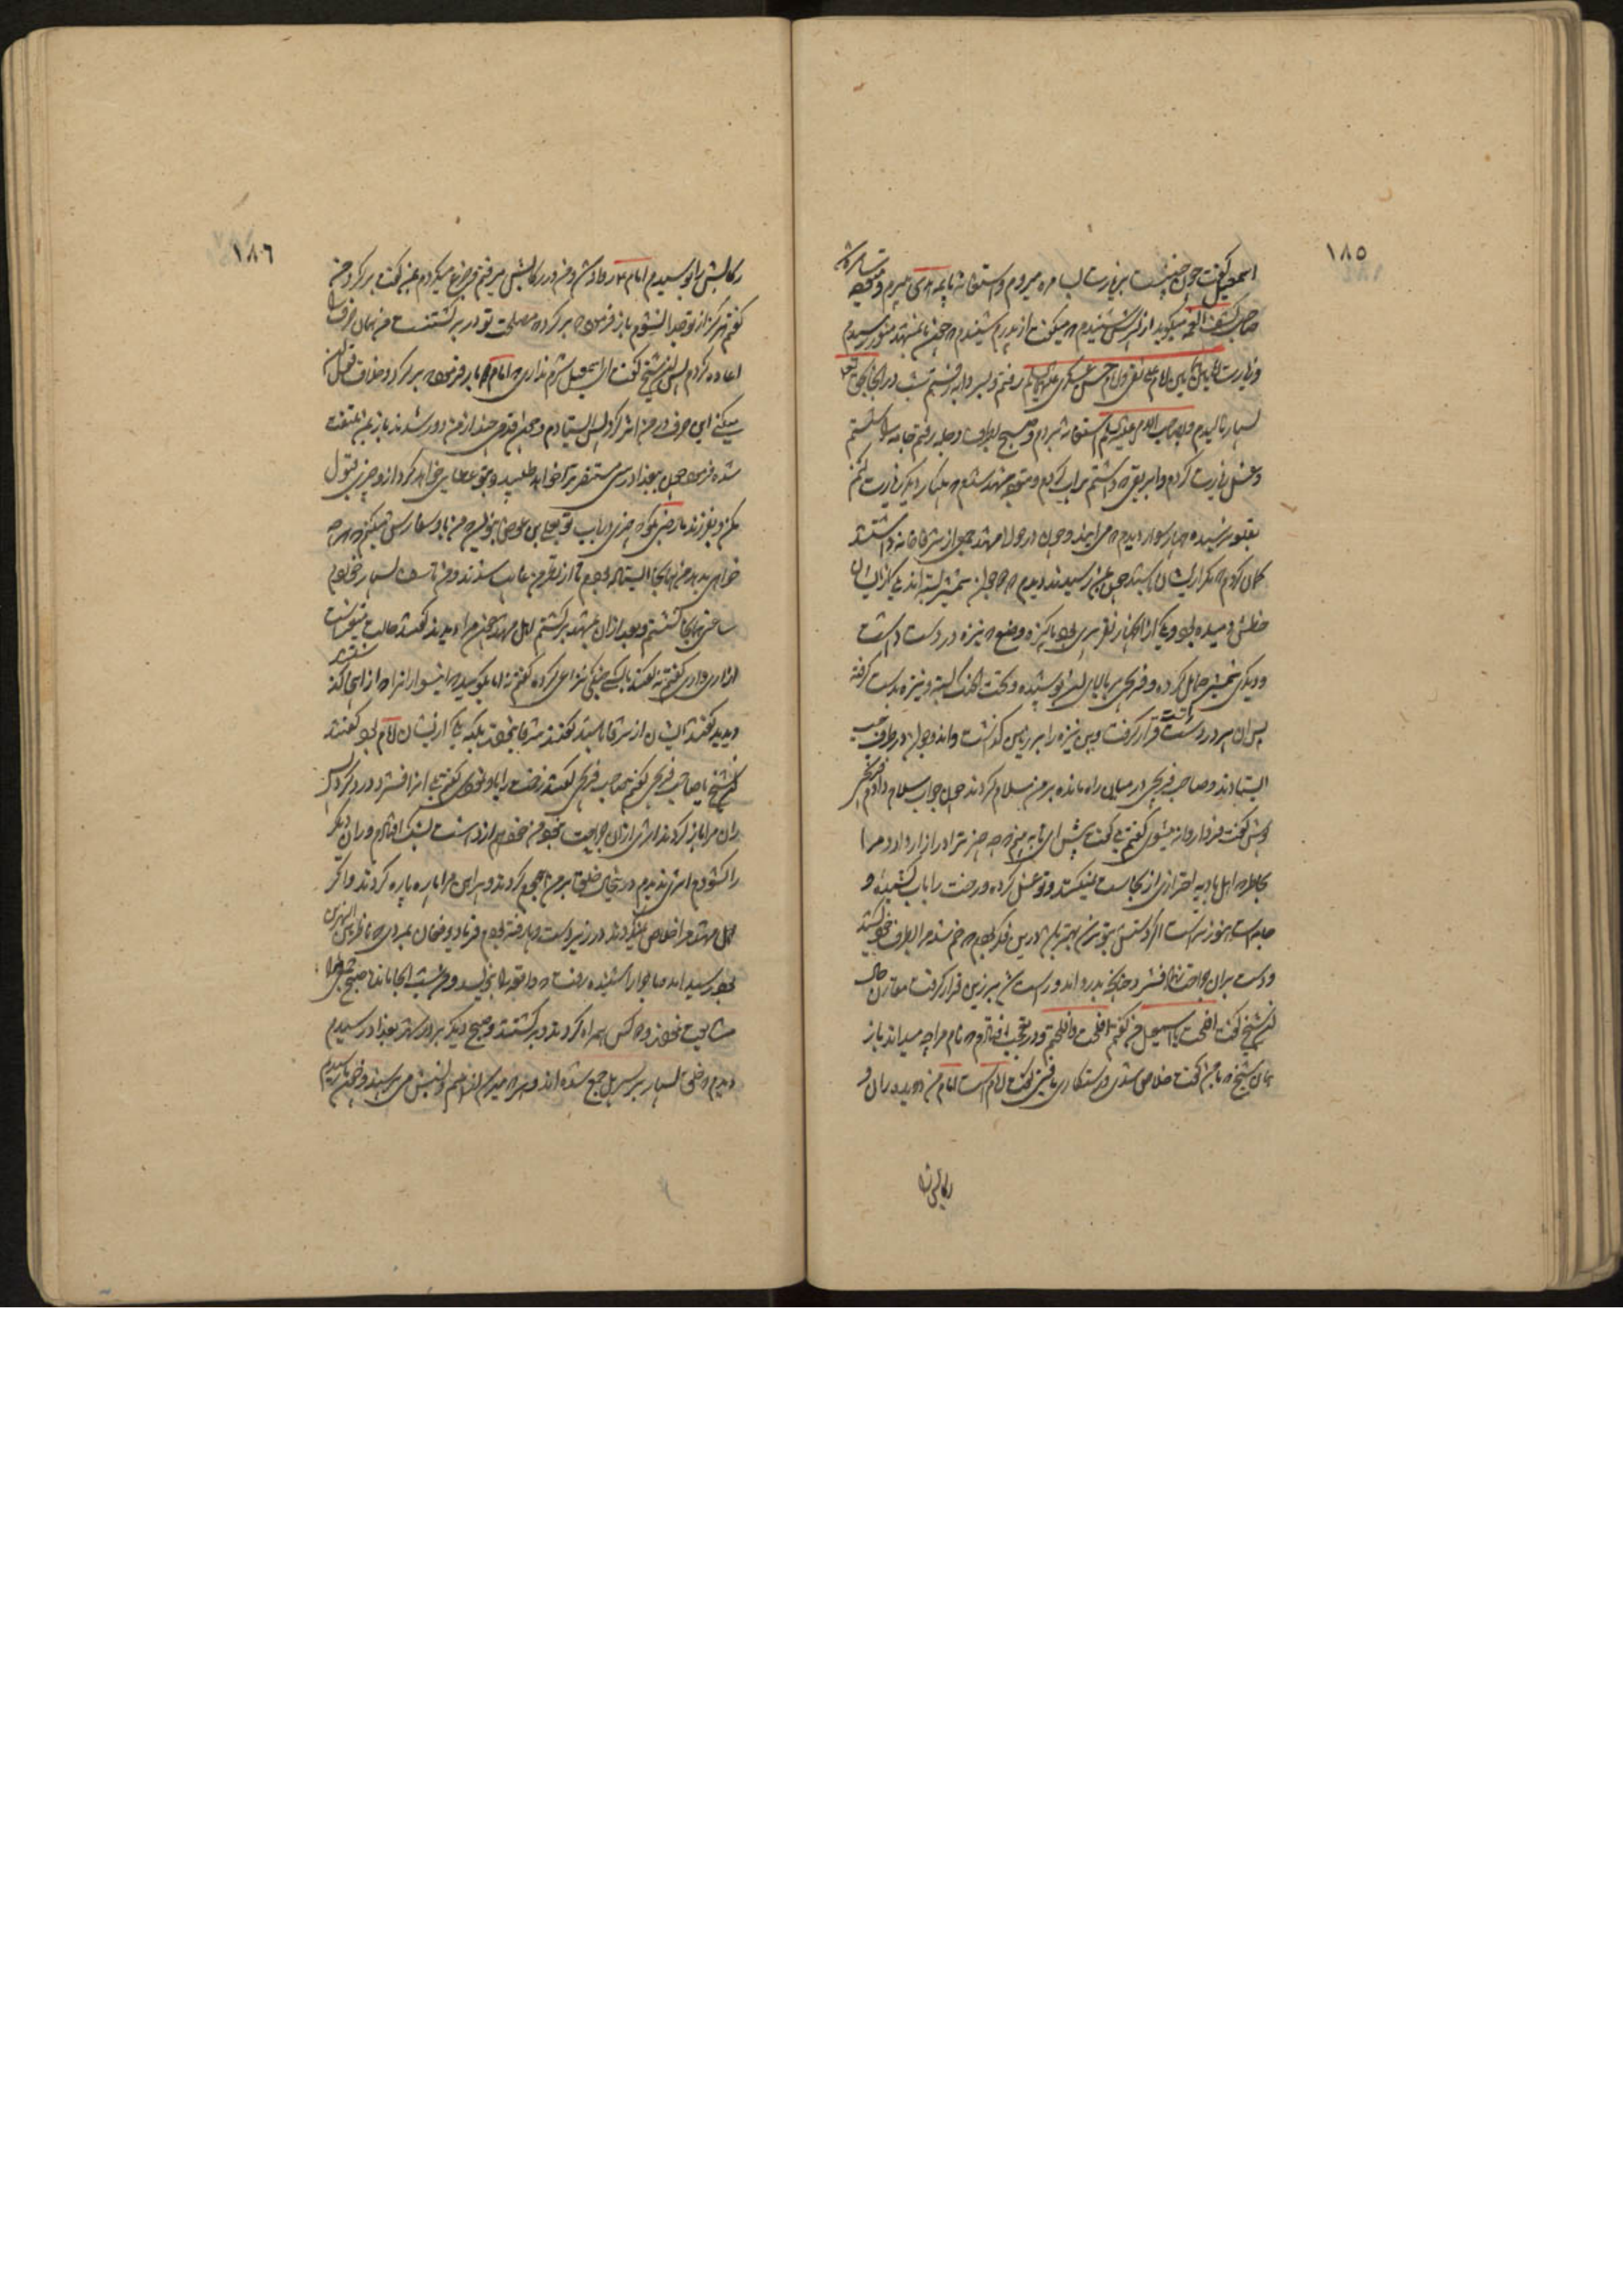 ١٨٥
اسمعیل گفت چون چنین است بزیارت سامره میروم و استغاثه بایمه هدی میبرم و متوجه سامره شد
صاحب کشف الغمه میگوید از پسرش شنیدم که میگفت از پدرم شنیدم که چون بآن مشهد منور رسیدم
و زیارت امامین همامین امام علی نقی و امام حسن عسکری علیهما السلام رفتم و بسردابه رفتم شب در آنجا بحق تعالی
بسیار نالیدم و بصاحب الامر علیه السلام استغاثه بردم و صبح بطرف دجله رفتم جامه را شستم
و غسل زیارت کردم و ابریقی که داشتم پر آب کردم و متوجه مشهد شدم که یکبار دیگر زیارت کنم
بقلعه نرسیده چهار سوار دیدم که می آیند و چون در حوالی مشهد جمعی از شرفا خانه داشتند
گمان کردم که مگر از ایشان باشند چون بمن رسیدند دیدم که دو جوان شمشیر بسته اند یکی از ایشان
خطش دمیده بود و یکی از آنها پیری بود پاکیزه وضع که نیزه در دست داشت
و دیگری شمشیری حمایل کرده و فرجی بر بالای آن پوشیده و تحت الحنک بسته و نیزه بدست گرفته
پس آن پیر در دست راست قرار گرفت و بن نیزه را بر زمین گذاشت و آن دو جوان در طرف چپ
ایستادند و صاحب فرجی در میان راه مانده بر من سلام کردند چون جواب سلام دادم فرجی
پوش گفت فردا روانه میشوی گفتم بلی گفت پیش آی تا ببینم که چه چیز ترا در آزار دارد مرا
بخاطر رسید که اهل بادیه احترازی از نجاست نمیکنند و تو غسل کرده و رخت را بآب کشیده و
جامه است هنوز تر است اگر دستش بتو نرسد بهتر باشد درین فکر بودم که خم شد و مرا بطرف خود کشید
و دست بر آن جراحت نهاده فشرد چنانکه بدرد آمد و راست شد بر زمین قرار گرفت مقارن آن حال
آن شیخ گفت افلحت یا اسمعیل من گفتم افلحتم و در تعجب افتادم که نام مرا چه میداند باز
همان شیخ که با من گفت خلاص شدی و رستگاری یافتی گفت امام است امام من دویده ران و
رکابش را
١٨٦
رکابش را بوسیدم امام ع روان شد و من در رکابش میرفتم و جزع میکردم بمن گفت برگرد من
گفتم هرگز از تو جدا نشوم باز فرمود که برگرد که مصلحت تو در برگشتن است من همان حرف را
اعاده کردم پس آن شیخ گفت ای اسمعیل شرم نداری که امام دو بار فرمود که برگرد و خلاف قول او
میکنی این حرف در من اثر کرد پس ایستادم و چون قدمی چند از من دور شدند باز بمن ملتفت
شده فرمود چون ببغداد رسی مستنصر ترا خواهد طلبید و بتو عطایی خواهد کرد از او چیزی قبول
مکن و بفرزندم رضی بگو که چیزی در باب تو بعلی بن عوض بنویسد که من باو سفارش میکنم که هر چه
خواهی بدهد من همانجا ایستاده بودم تا از نظر من غایب شدند و من تاسف بسیار خوردم
ساعتی همانجا نشستم و بعد از آن بمشهد برگشتم اهل مشهد چون مرا دیدند گفتند حالت متغیر است
آزاری داری گفتم نه گفتند با کسی جنگ و نزاعی کرده گفتم نه اما بگویید که این سواران را که از اینجا گذشتند
دیدید گفتند ایشان از شرفا باشند گفتم شرفا نبودند بلکه یکی از ایشان امام بود گفتند
آن شیخ یا صاحب فرجی گفتم صاحب فرجی گفتند زخمت را باو نمودی گفتم بلی آنرا فشرد و درد کرد پس
ران مرا باز کردند اثری از آن جراحت نبود من خود هم از دهشت بشک افتادم و ران دیگر
را گشودم اثری ندیدم در اینحال خلق بر من هجوم کردند و پیراهن مرا پاره پاره کردند و اگر
اهل مشهد مرا خلاص نمیکردند در زیر دست و پا رفته بودم و فریاد و فغان بمردی که ناظر بین النهرین
بود رسید آمد ماجرا را شنیده رفت که واقعه را بنویسد و من شب آنجا ماندم صبح جمعی مرا
مشایعت نمودند و دو کس همراه کردند و برگشتند و صبح دیگر بر در شهر بغداد رسیدم
دیدم که خلق بسیار بر سر پل جمع شده اند و هر که میرسد از او اسم و نسبش می پرسند و چون ما رسیدیم